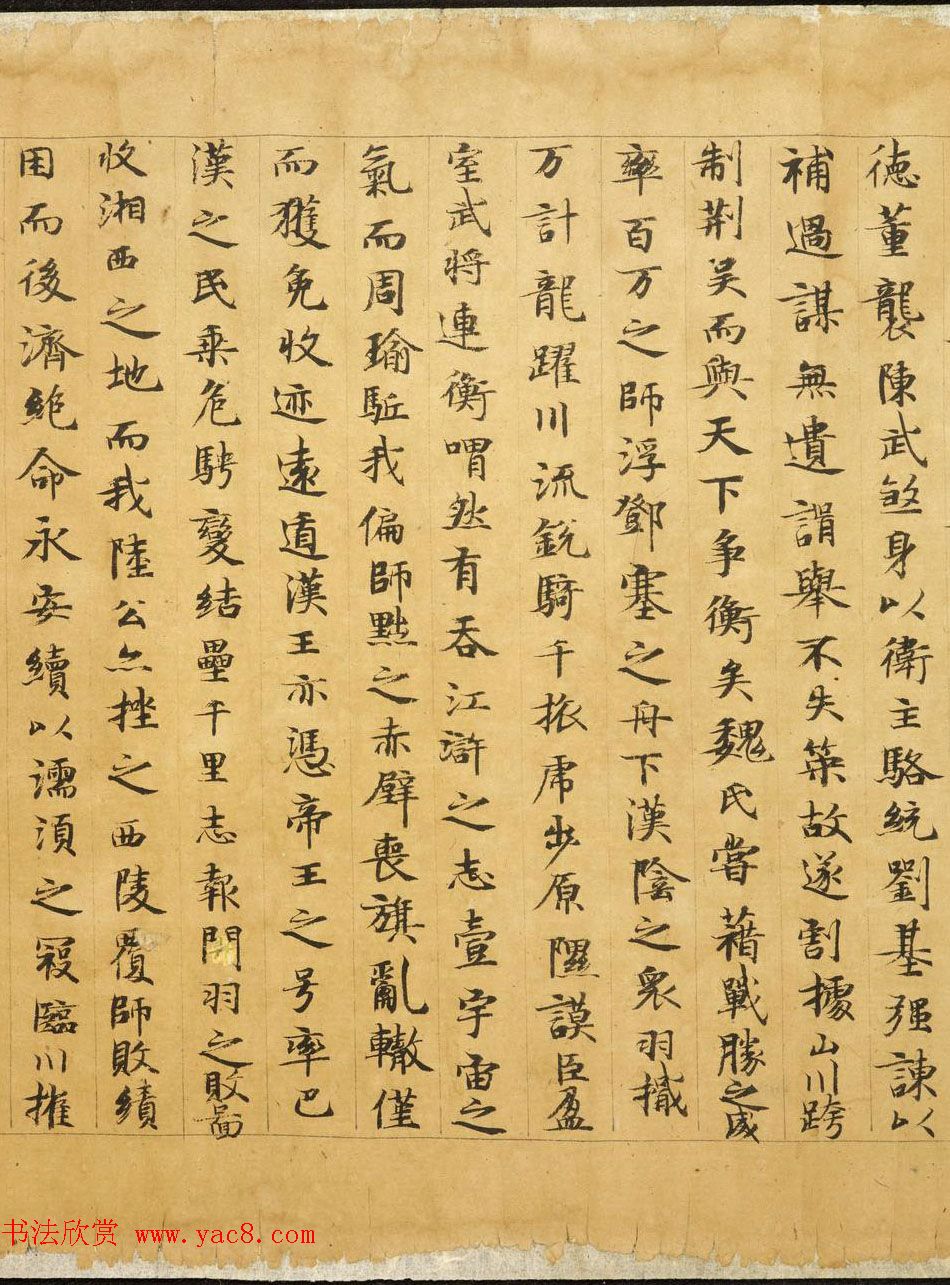 德董襲陳武煞身以衛主駱統劉基强諌以
補過謀無遺諝舉不失策故遂割據山川跨
制荆吴而與天下争衡矣魏氏嘗藉戰勝之威
率百万之師浮鄧塞之舟下漢陰之衆羽檝
万計龍躍川流銳騎千旅虎步原隰謨臣盈
室武將連衡喟然有吞江滸之志壹宇宙之
氣而周瑜駈我偏師黜之赤壁喪旗亂轍僅
而獲免收迹遠遁漢王亦憑帝王之号率巴
漢之民乗危騁變結壘千里志報關羽之敗啚
收湘西之地而我陸公亦挫之西陵覆師敗績
困而後濟絶命永安續以濡湏之寇臨川摧
书法欣赏 www.yac8.com